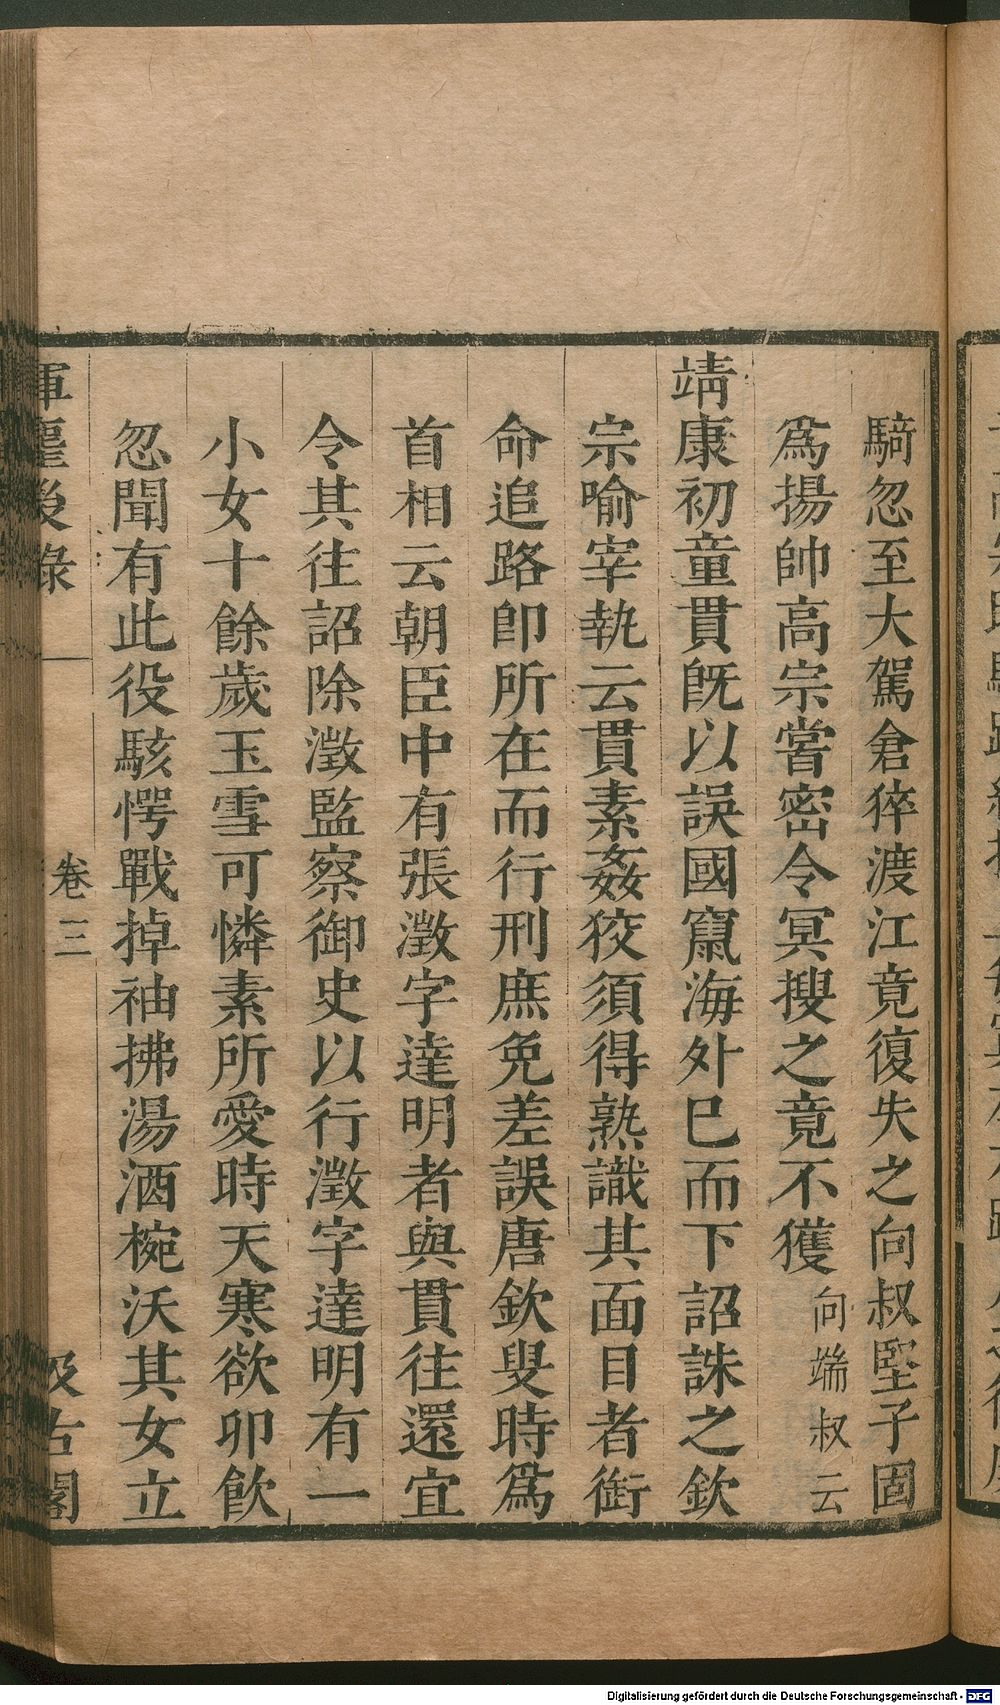 騎忽至大駕倉猝渡江竟復失之向叔堅子固
爲揚帥高宗嘗密令冥搜之竟不獲向端叔云
靖康初童貫旣以誤國竄海外已而下詔誅之欽
宗喻宰執云貫素姦狡須得熟識其面目者銜
命追路卽所在而行刑庶免差誤唐欽叟時爲
首相云朝臣中有張澂字達明者與貫往還宜
令其往詔除澂監察御史以行澂字達明有一
小女十餘歲玉雪可憐素所愛時天寒欲卯飮
忽聞有此役駭愕戰掉袖拂湯酒椀沃其女立
揮麈後錄 卷三 汲古閣
Digitalisierung gefördert durch die Deutsche Forschungsgemeinschaft - DFG